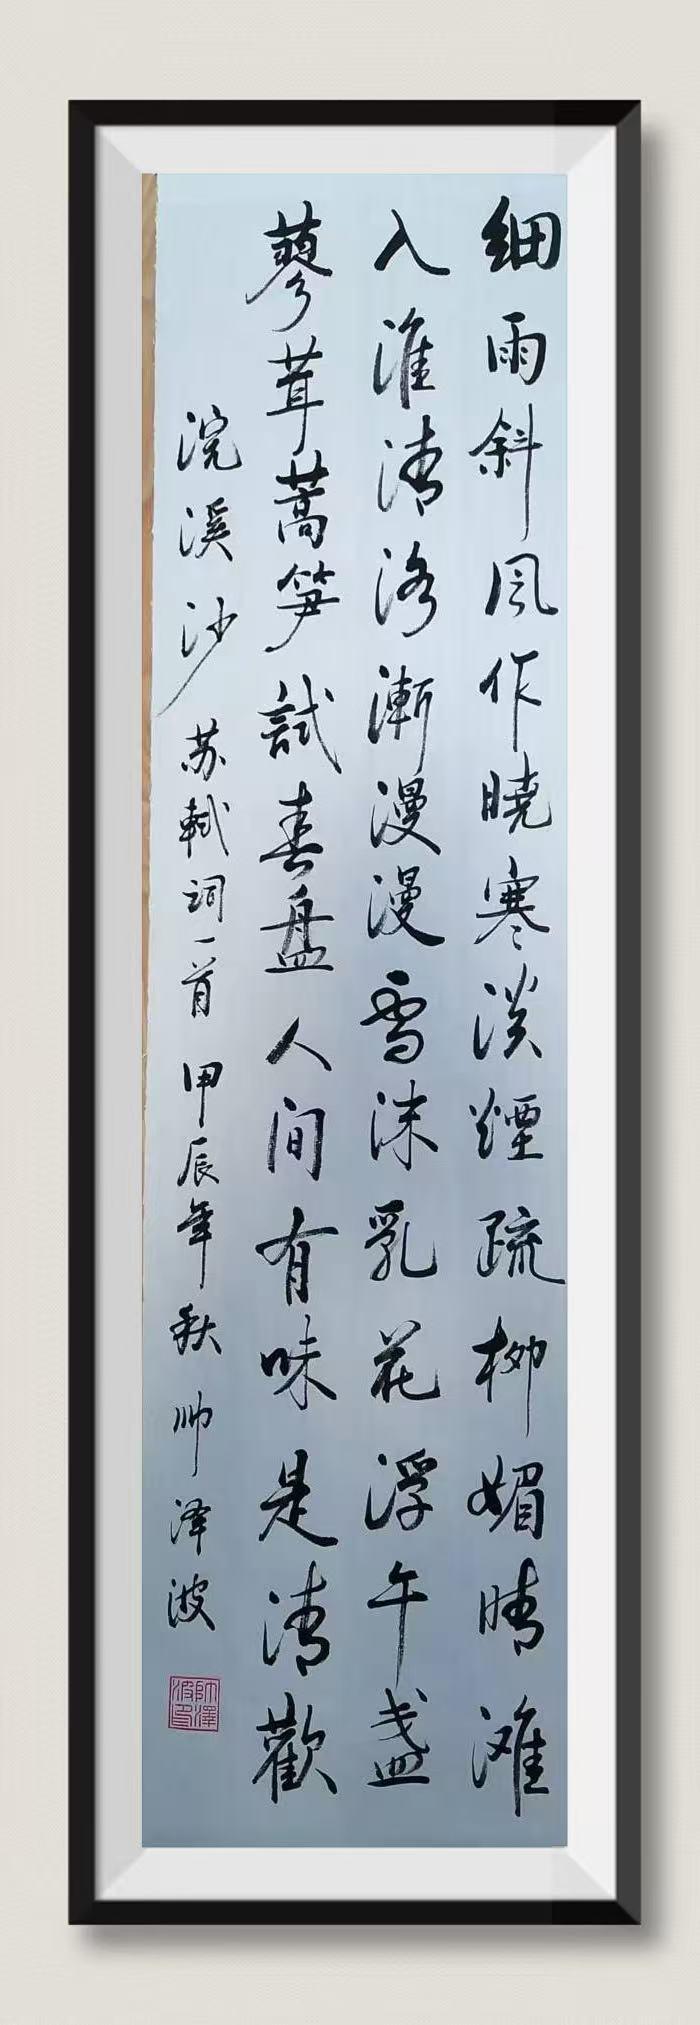 细雨斜风作晓寒淡煙疏柳媚晴滩
入淮清洛漸漫漫雪沫乳花浮午盏
蓼茸蒿笋試春盘人间有味是清歡
浣溪沙 苏軾词一首 甲辰年秋 帅泽波
帅澤波印